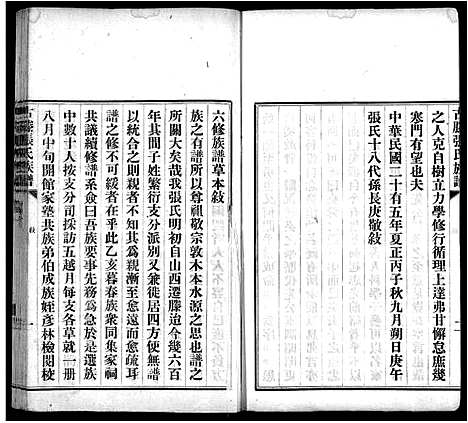 之人克自樹立力學修行循理上達弗甘懈怠庶幾
寒門有望也夫
中華民國二十有五年夏正丙子秋九月朔日庚午
張氏十八代孫長庚敬敍
古滕張氏族譜
六修族譜草本敍
族之有譜所以尊祖敬宗敦木本水源之思也譜之
所關大矣哉我張氏明初自山西遷滕迨今幾六百
年其間子姓繁衍支派別又兼徙居四方使無譜
以統合之而不知其爲親漸至愈而愈疏耳
譜之修不可緩者在乎此乙亥暮春族衆同集家祠
共議續修譜系僉曰吾族要事先務爲急於是選族
中數十人按支分司採訪五越月每支各草就一册
八月中旬開館家塾共族弟伯成族姪彥林檢閱校
古滕張氏族譜
敍
一